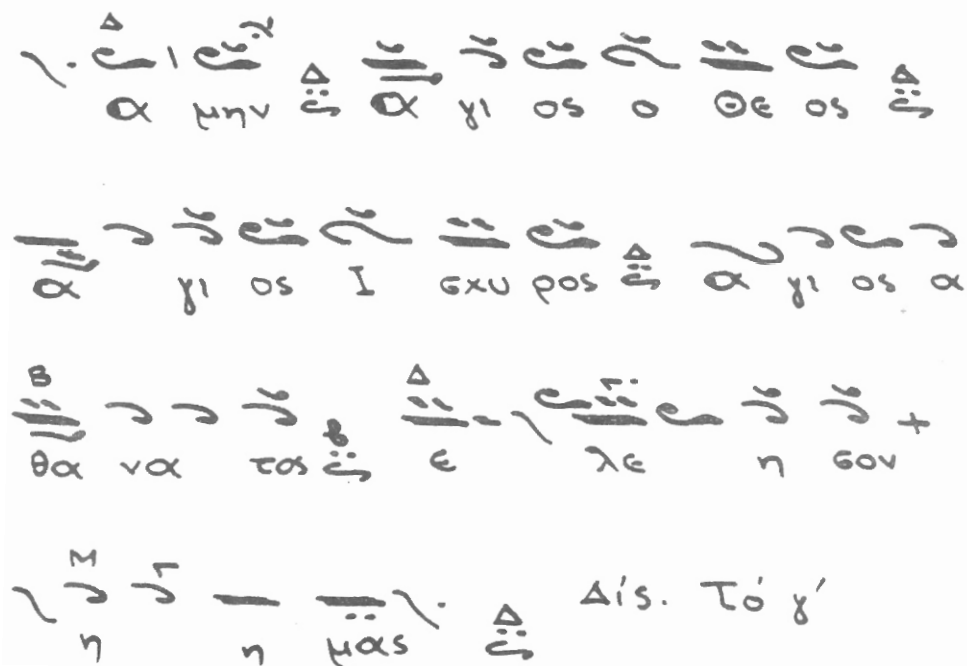 α μην α γι ος ο Θε ος
α γι ος Ι σχυ ρος α γι ος α
θα να τος ε λε η σον
η η μας Δίς. Τό γ'